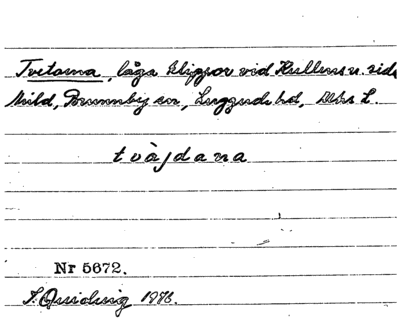 Tvetama, låga klippor vid Kullens v. sida
Mild, Brunnby sn, Luggude hd, Mhs L.
tvàjdana
Nr 5672.
T. Quiding 1976.